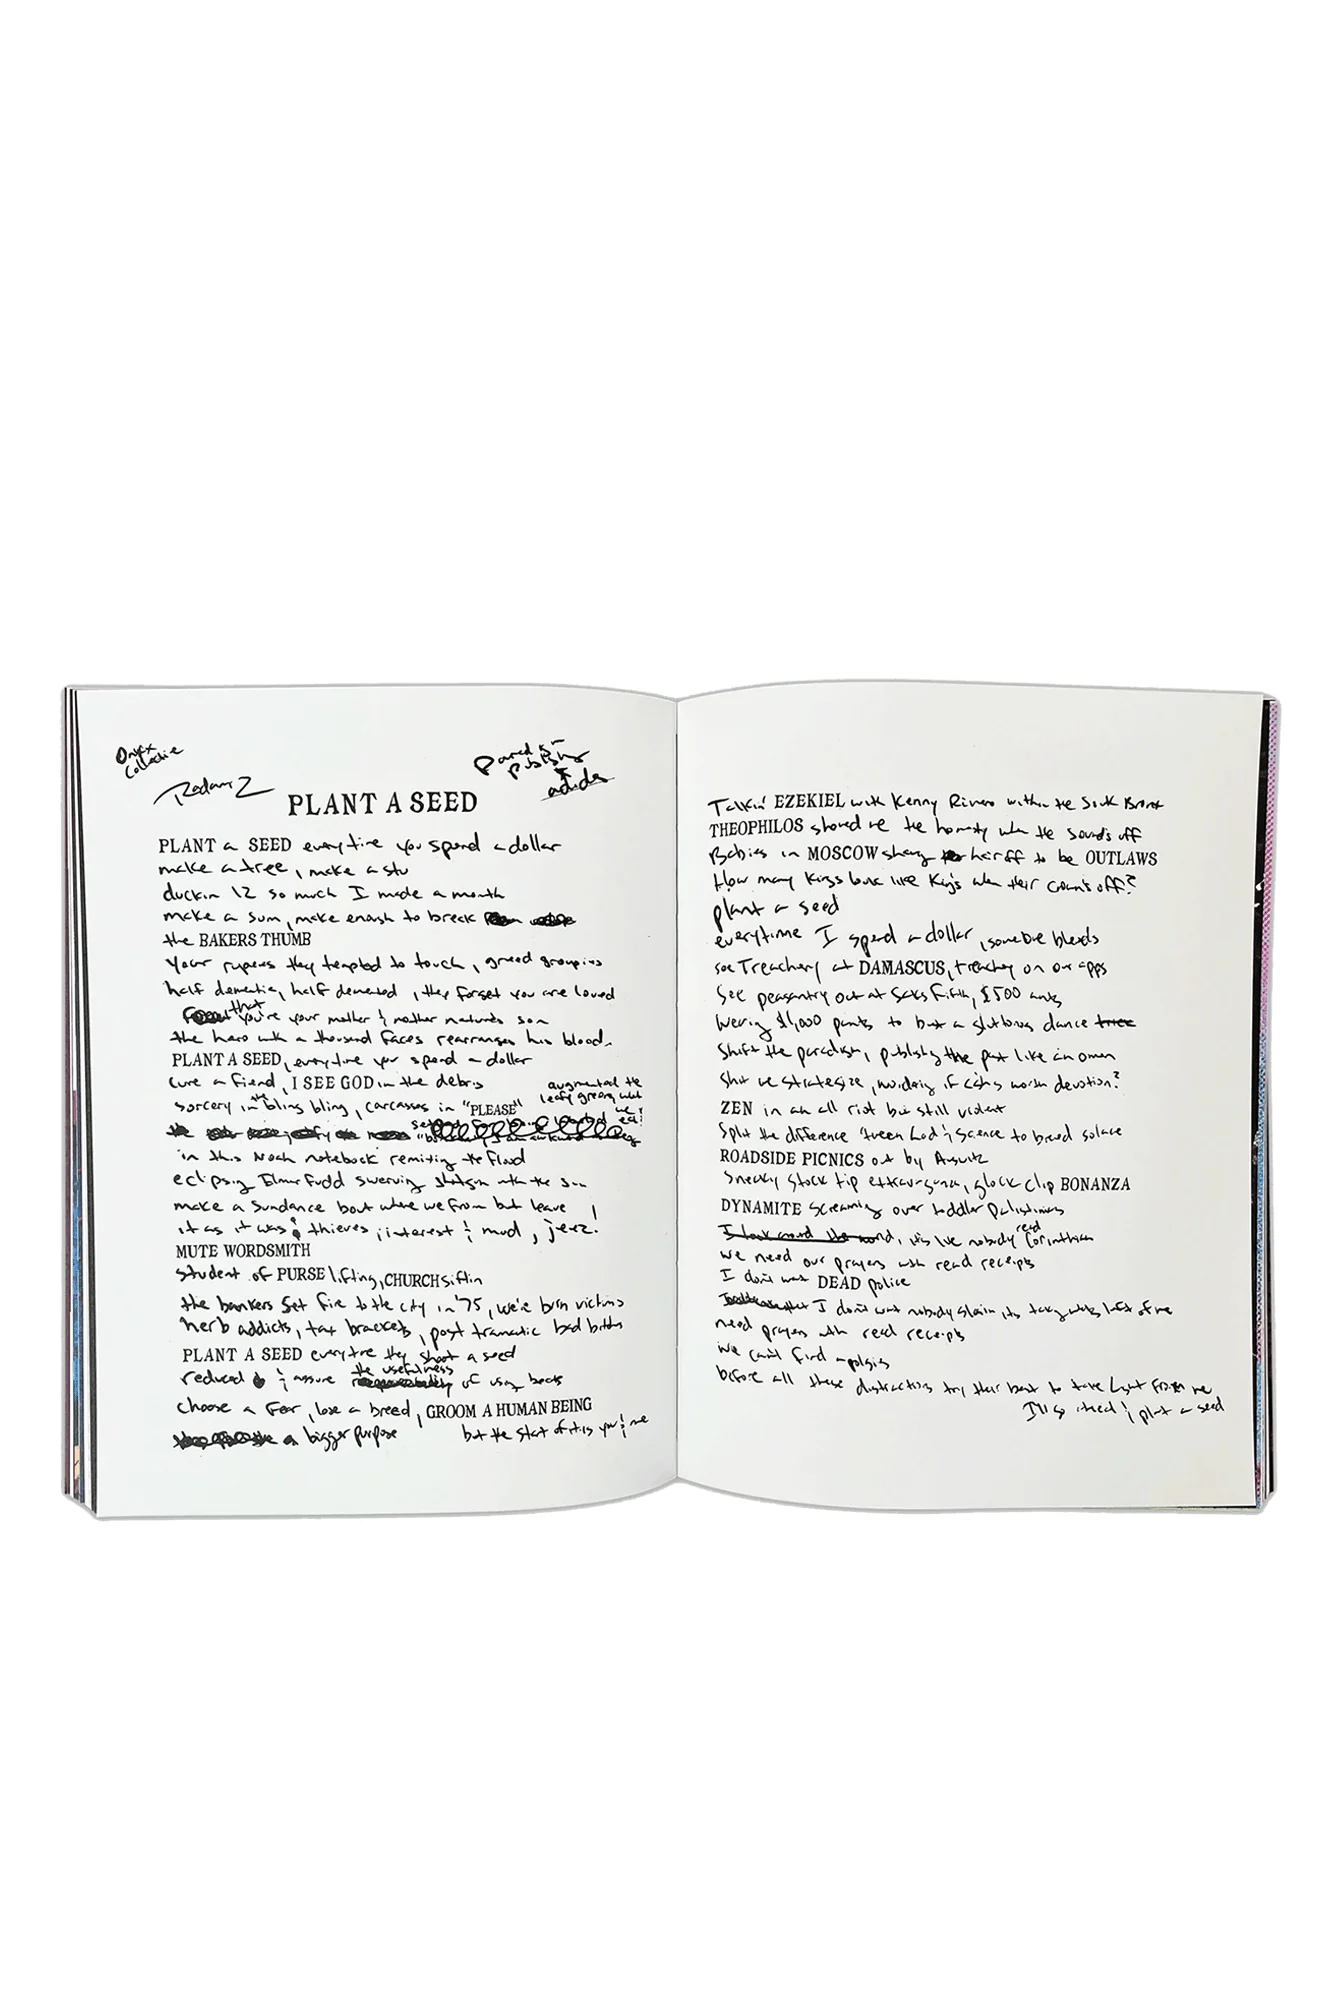 Onyx
Collective
Paradigm
Publishing
adidas
PLANT A SEED
PLANT a SEED everytime you spend a dollar
make a tree, make a stu
duckin 12 so much I made a month
make a sum, make enough to break
the BAKERS THUMB
Your rupees they tempted to touch, greed groupies
half dementia, half demented, they forget you are loved
that you're your mother & mother natures son
the hero with a thousand faces rearranges his blood.
PLANT A SEED, everytime you spend a dollar
cure a fiend, I SEE GOD in the debris
augmented the
leafy greens
sorcery in the bling bling, carcasses in "PLEASE"
in this Noah notebook remixing the flood
eclipsing Elmer Fudd swerving shotgun with the sun
make a Sundance bout where we from but leave
it as it was & thieves, interest & mud, jeez!
MUTE WORDSMITH
student of PURSE lifting, CHURCH siftin
the bankers set fire to the city in '75, we're born victims
herb addicts, tax brackets, post tramatic bad
PLANT A SEED everytime they shoot a seed
reduced & assure the usefulness of using
choose a fear, lose a breed, GROOM A HUMAN BEING
a bigger purpose but the start of it is you & me
Talkin' EZEKIEL with Kenny Rivero within the South Bronx
THEOPHILOS showed me the homesty when the sounds off
Babies in MOSCOW shaving hair off to be OUTLAWS
How many Kings look like Kings when their crown's off?
plant a seed
everytime I spend a dollar, someone bleeds
see Treachery at DAMASCUS, treachery on our apps
see peasantry out at Saks Fifth, $500
wearing $1,000 pants to bust a gluttonous dance
shift the paradigm, publishing the past like an omen
shit we strategize, wondering if cash's worth devotion?
ZEN in an all riot but still violent
Split the difference 'tween God & Science to breed solace
ROADSIDE PICNICS out by
Sneaky stock tip extravaganza, glock clip BONANZA
DYNAMITE screaming over toddler Palestinians
I look around the world, it's like nobody read Corinthian
we need our prayers with read receipts
I don't want DEAD police
I don't want nobody slain, it's taking whats left of me
need prayers with read receipts
we can't find apologies
before all these distractions try their best to take Light from me
I'll go ahead & plant a seed